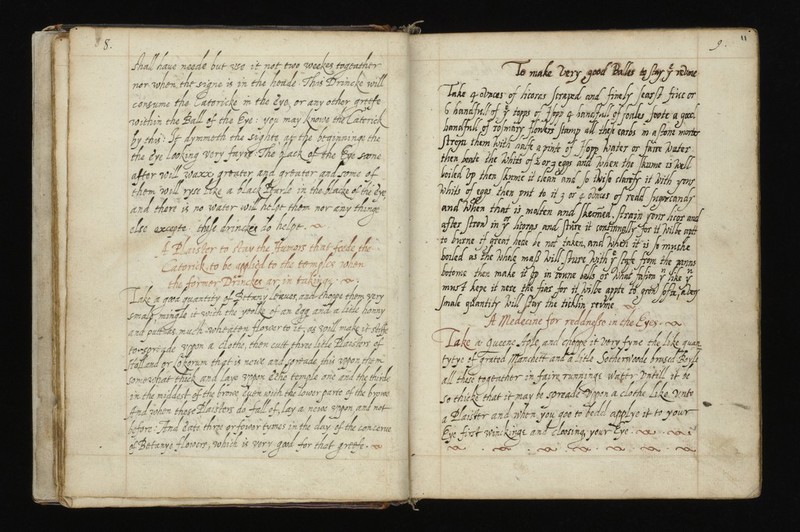 8.
shall have neede but use it not two weekes togeather
nor when the signe is in the heade. This Drincke will
consume the Catericke in the Eye, or any other greefe
within the Ball of the Eye: you may knowe the Caterick
by this: It dymmeth the sighte at the beginninge the
the Eye looking very fayre. The black of the Eye
after will waxx greater and greater and some of
them will ryse like a black Pearle in the blacke of the Eye,
and there is no water will helpe them nor any thinge
else excepte these drinckes do helpe.
A Plaister to staie the Humors that feede the
Caterick, to be applyed to the temples when
the former Drinckes ar in takinge.
Take a good quantity of Betany leaves, and choppe them very
smale, mingle it with the yoelke of an Egg and a litle honny
and put as much wheaten flower to it, as will make it stiffe
to spreade uppon a clothe, then cutt three litle Plaisters of
that is newe and spreade this uppon them
somewhat thick and laye uppon eche temple one and the thirde
in the middest of the browe Even with the lower parte of the browe
And when these Plaisters do fall of, lay a newe uppon, and not
before: And eate three or fower tymes in the day of the conserve
of Betanye flowers, which is very good for that greefe.
9. 11
To make very good Balles to stay ye rewme
Take 4 ounces of licoras scraped and finely searst five or
6 handfull of ye topps of Isop 4 handfull of foote a good
handfull of rosmary flowers stamp all thes earbs in a stone morter
strayn them with halfe a pinte of Isop water or faire water
then the whits of 2 or 3 eggs and when the skume is well
boiled up then skyme it clean and so clarify it with your
whits of eggs then put to it 3 or 4 ounces of redd sugercandy
and when that is malten and skemed, strain your licor and
after strew in yr licoras and stire it continually for it wilbe apt
to burne if great hede be not taken, and when it is so mutche
boiled as the whole mass will sture with ye from the panns
bottome then make it up in rowne balls or what fation ye like yu
must kepe it nere the fire for it wilbe apte to grow softe, a very
smale quantity will stay the ticklin rewme.
A Medecine for reddnesse in the Eyes.
Take a Queene Aple, and choppe it very fyne the like quan-
tytye of grated Manchett and a litle Sothernwoode brused Boyle
all these togeather in faire runninge water untill it be
so thicke that it may be spreade uppon a clothe like unto
a Plaister and when you goe to bedd applye it to your
Eye first winckinge and cloosing your Eye.